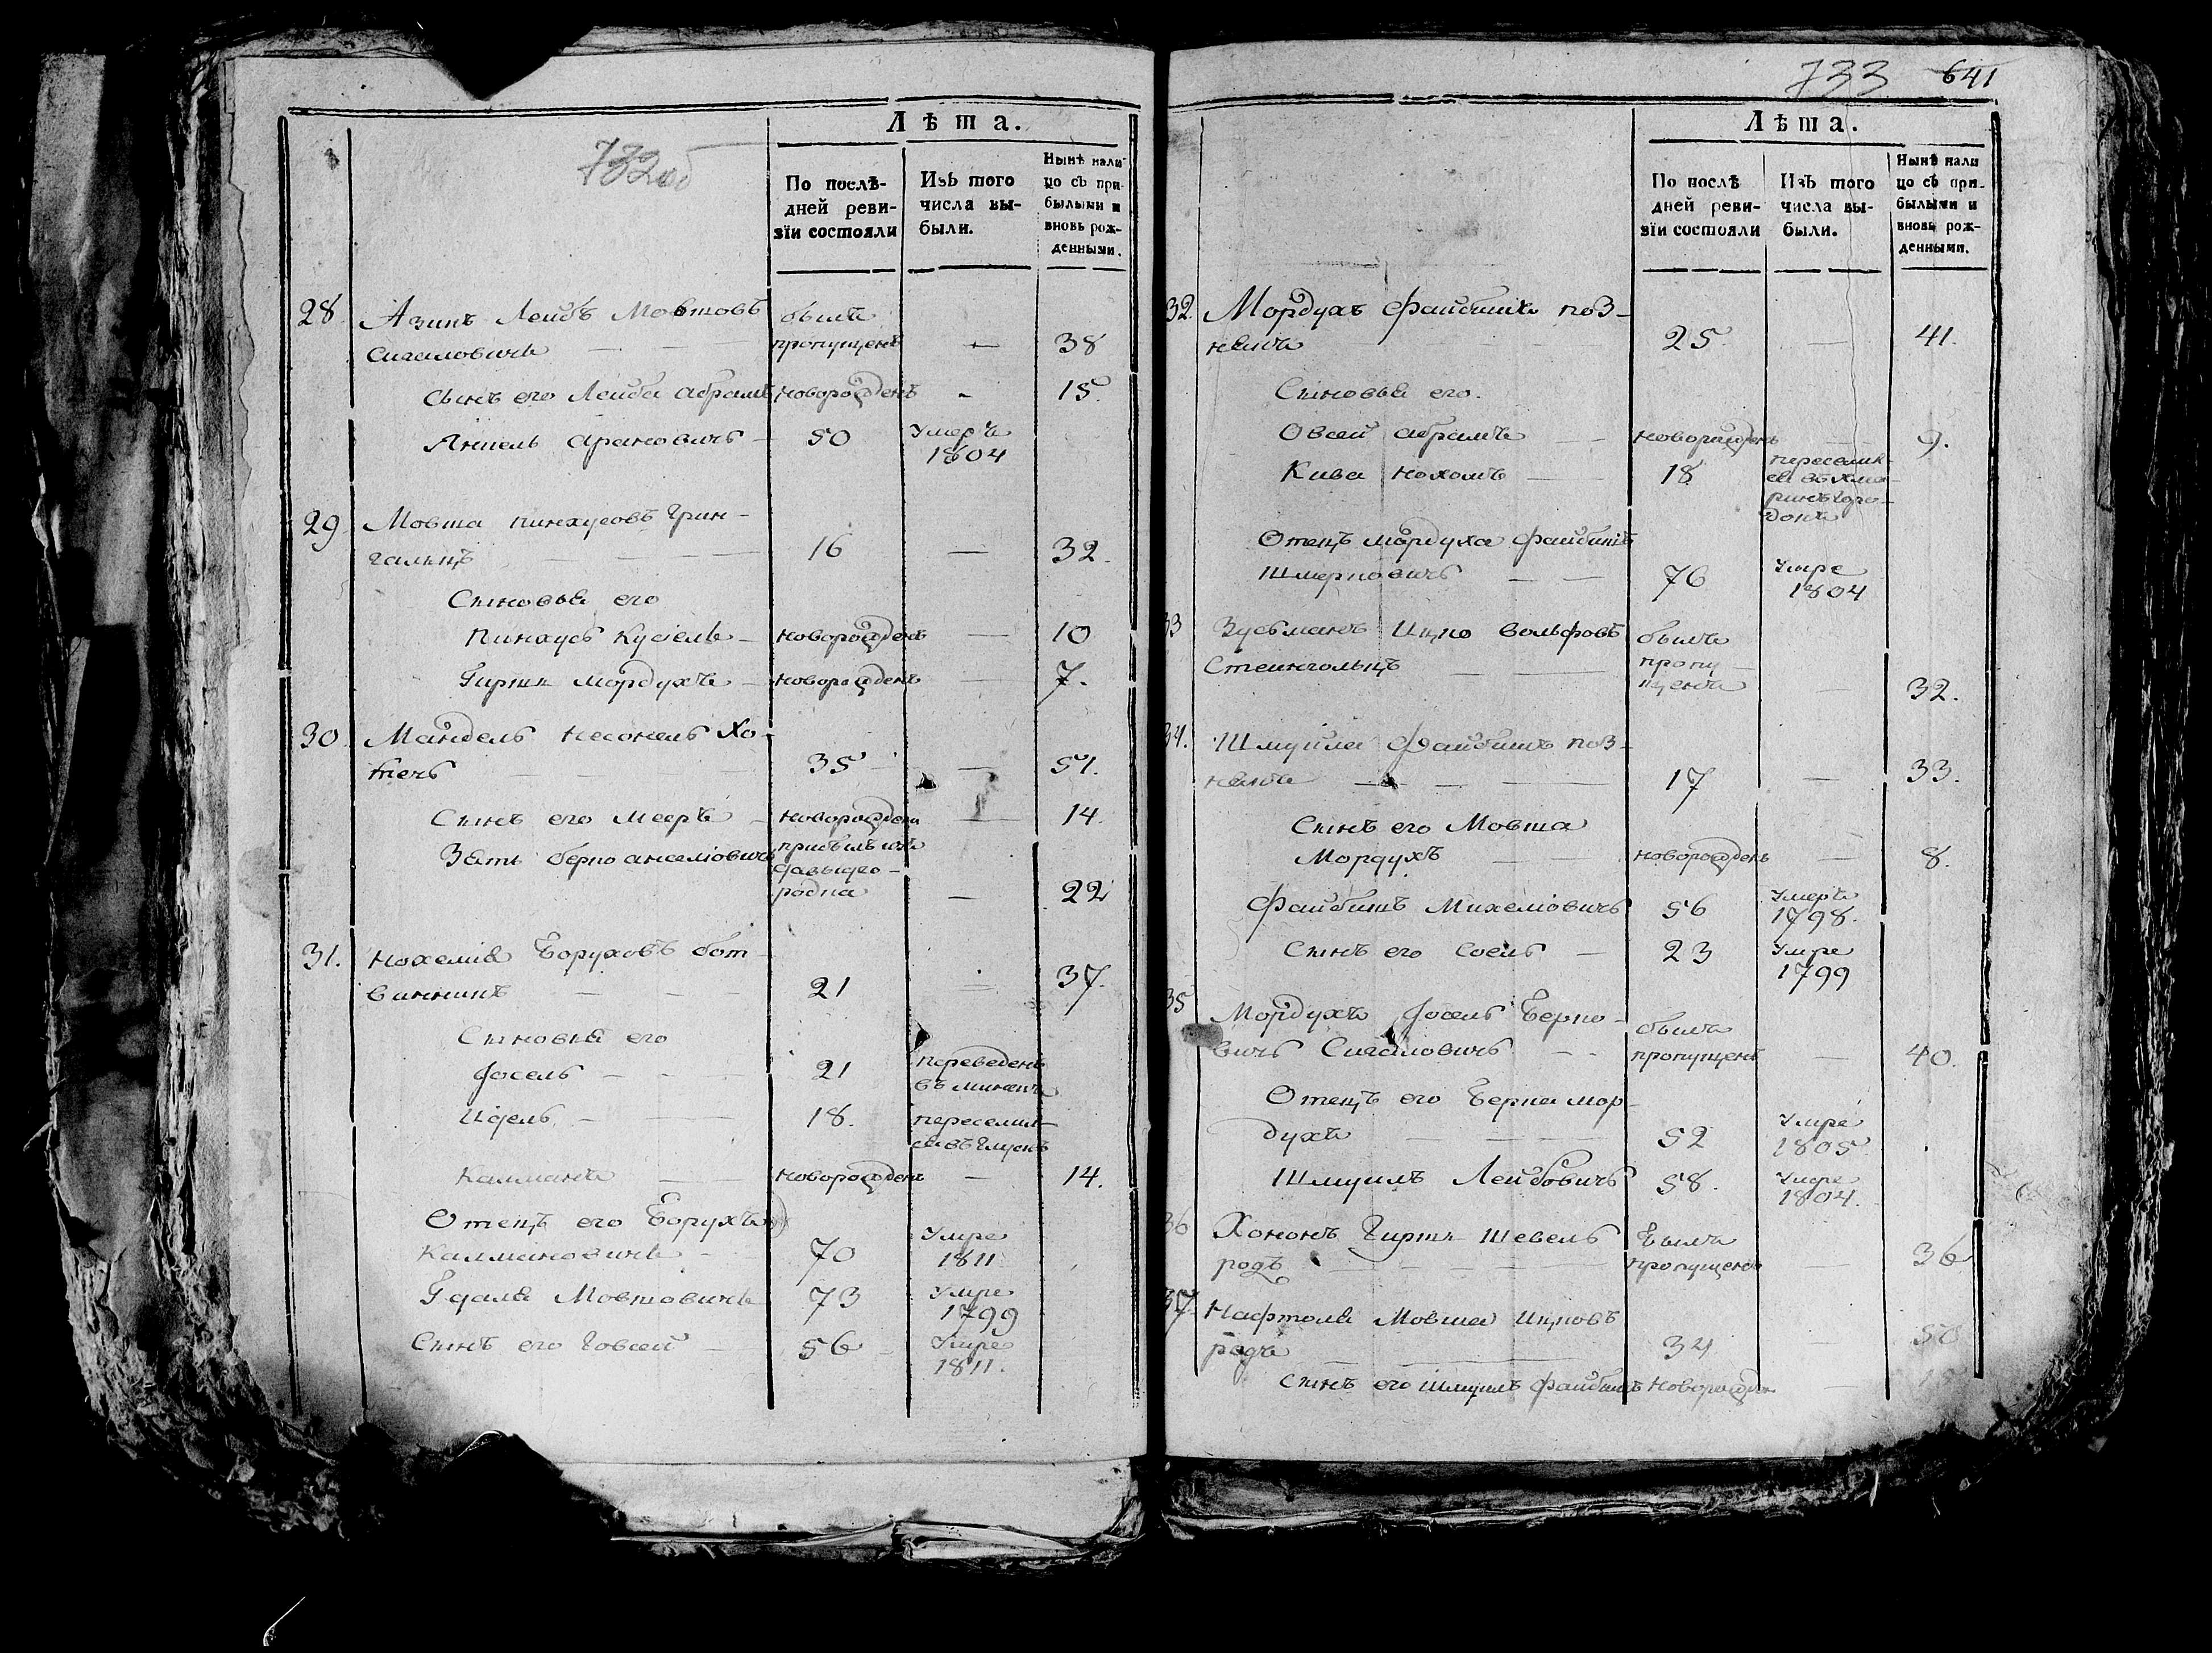 732об
Лѣта.
По послѣ-
дней реви-
зїи состояли
Изъ того
числа вы-
были.
Нынѣ нали-
цо съ при-
былыми и
вновь рож-
денными.
28. Лейбъ Мовшовъ былъ
пропущенъ — 38
Сынъ его Лейба Абрамъ новорожденъ - 15.
Янкель Ароновичъ - 50 Умеръ
1804
29. Мовша Пинхусовъ Грин-
гольцъ — 16 — 32.
Сыновья его
Пинхусъ Кусіель — новорожденъ — 10
Гиршъ Мордухъ — новорожденъ — 7.
30. Мандель Несонель Хо-
35 — 51.
Сынъ его Мееръ — новорожденъ — 14.
Зять Берко Анселіовичъ прибылъ изъ
Давыдго-
родка — 22
31. Нохемія Боруховъ Бот-
винникъ — 21 — 37.
Сыновья его
Іосель — 21 переведенъ
въ Минскъ
Идель — 18. переселил-
ся въ Глускъ
Калманъ — новорожденъ — 14.
Отецъ его Борухъ
Калмановичъ — 70 Умре
1811
Гдаля Мовшовичъ 73 Умре
1799
Сынъ его Говсей — 56 Умре
1811.
733 641
Лѣта.
По послѣ
дней реви-
зїи состояли
Изъ того
числа вы-
были.
Нынѣ нали
цо съ при-
былыми и
вновь рож-
денными.
32. Мордухъ Файбишъ Поз-
някъ 25 — 41.
Сыновья его.
Овсей Абрамъ — новорожденъ — 9.
Кива Нохомъ — 18 переселил-
ся въ
Отецъ Мордуха Файбишъ
Шмерковичъ — 76 Умре
1804
33 Зусьманъ Ицко Вольфовъ былъ
Стейнгольцъ — пропу-
щенъ — 32.
34. Шмуйла Файбишъ Поз-
някъ — 17 — 33.
Сынъ его Мовша
Мордухъ — новорожденъ — 8.
Файбишъ Михеліовичъ 56 Умеръ
1798.
Сынъ его Іоель — 23 Умре
1799
35 Мордухъ Іосель Берко-
вичъ Сигаловичъ — былъ
пропущенъ — 40.
Отецъ его Берка Мор-
духъ — 52 Умре
1805.
Шмуилъ Лейбовичъ 58. Умре
1804.
36 Хононъ Гиршъ Шевель былъ
родъ — пропущенъ — 36
37. Нафтоля Мовша Ицковъ
родъ — 34 — 50
Сынъ его Шмуилъ Файбишъ новорожденъ —